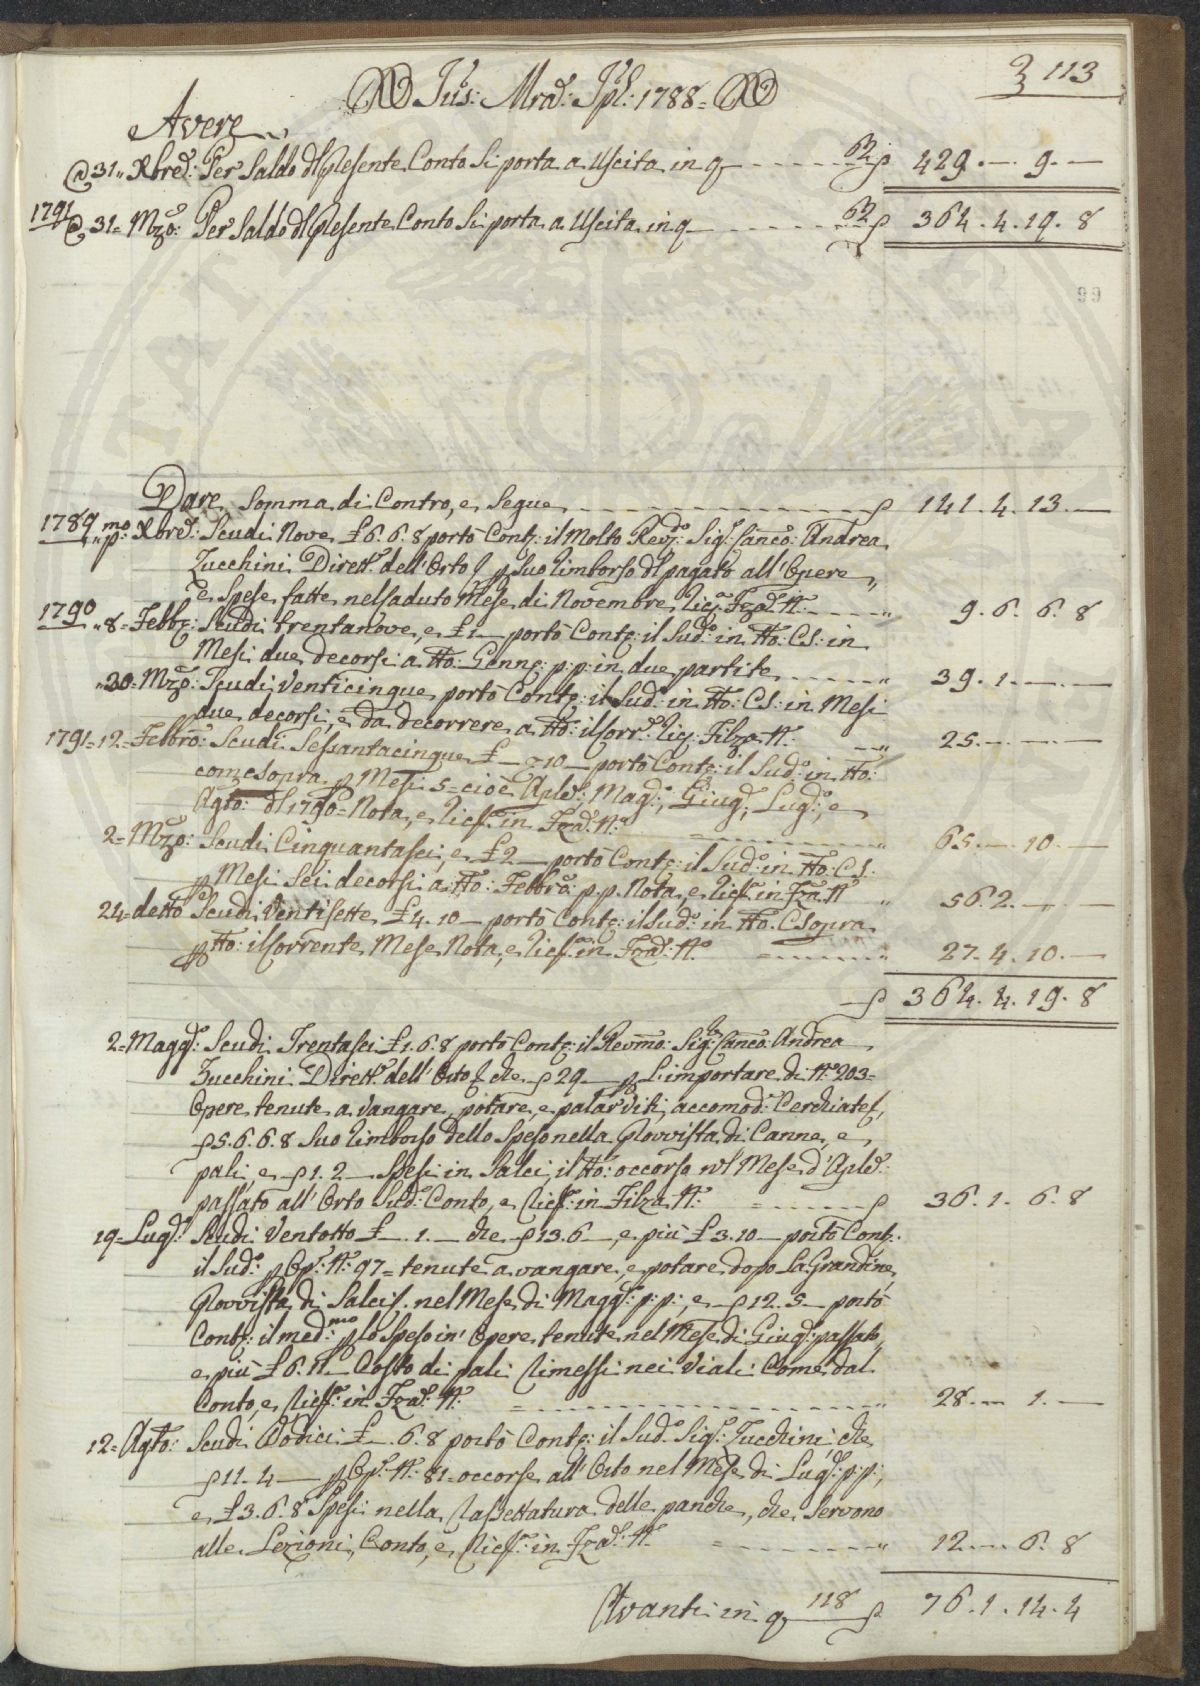 Jus: Mrã: Jpl: 1788 =
3 113
Avere
@ 31 „ Xbre: Per Saldo dl presente Conto Si porta a Uscita in q 63 429. — 9. —
1791
@ 31 = Mzo: Per Saldo dl presente Conto Si porta a Uscita in q 63 364. 4. 19. 8
99
Dare Somma di Contro, e Segue 141. 4. 13. —
1789 „ pmo Xbre: Scudi Nove £ 6. 6. 8 portò Contz: il Molto Revdo: Sigr: Canco: Andrea
Zucchini Dirett: dell'Orto p suo rimborso dl pagato all'Opere,
e Spese fatte nel caduto Mese di Novembre, Ricf: Fzad: N: „ 9. 6. 6. 8
1790 „ 8 = Febbr: Scudi trentanove, e £ 1 — portò Contz: il Sudo: in tto: C.S: in
Mesi due decorsi a tto: Genno: p: p: in due partite 39. 1. — —
„ 30 = Mzo: Scudi Venticinque portò Contz: il Sudo: in tto: C.S: in Mesi
due decorsi, e da decorrere a tto: il Corr: Ricf: Filza N: 25. — — —
1791 = 12 = Febbro: Scudi Sessantacinque £ — 10 — portò Contz: il Sudo: in tto:
come sopra p Mesi 5 = cioè Aple: Magg: Giug: Lugo: e
Agto: dl 1790 = Nota, e Ricf: in Fzad: N: 65. — 10. —
2 = Mzo: Scudi Cinquantasei, e £ 2 — portò Contz: il Sudo: in tto: C.S.
p Mesi Sei decorsi a tto: Febbro: p. p. Nota, e Ricf: in Fza N: 56 2. — —
24 = detto Scudi Ventisette, £ 4. 10 — portò Contz: il Sudo: in tto: C Sopra
p tto: il Corrente Mese Nota, e Ricf: in Fzad: N: 27. 4. 10. —
364. 4. 19. 8
2 = Maggo: Scudi Trentasei £ 1. 6. 8 portò Contz: il Revmo: Sigr: Canco: Andrea
Zucchini Dirett: dell'Orto che 29 — p L'importare di N: 203 =
Opere tenute a Vangare, potare, e palar Viti, accomod: Cerchiate,
5. 6. 6. 8 Suo rimborso dello Speso nella Provvista di Canne, e
pali, e 1. 2 — Spesi in Salci, il tto: occorso nel Mese d'Aple:
passato all'Orto Sudo: Conto, e Ricf: in Filza N: 36. 1. 6. 8
19 = Lugo: Scudi Ventotto £ — 1. — che 13. 6 —, e più £ 3. 10 — portò Contz:
il Sudo: p Op: N: 97 = tenute a vangare, e potare dopo la Grandine,
Provvista di Salci nel Mese di Maggo: p: p:, e 12. 5 — portò
Contz: il medmo: p lo Speso in Opere tenute nel Mese di Giugo: passato,
e più £ 6. 11 — Costo di pali rimessi nei Viali Come dal
Conto, e Ricf: in Fzad: N: 28. — 1. —
12 = Agto: Scudi Dodici £ — 6. 8 portò Contz: il Sudo: Sigr: Zucchini, che
11. 4 — p Op: N: 81 = occorse all'Orto nel Mese di Lugo: p: p:,
e £ 3. 6. 8 Spesi nella Rassettatura delle panche, che Servono
alle Lezioni, Conto, e Ricf: in Fzad: N: 12. — 6. 8
Avanti in q 118 76. 1. 14. 4